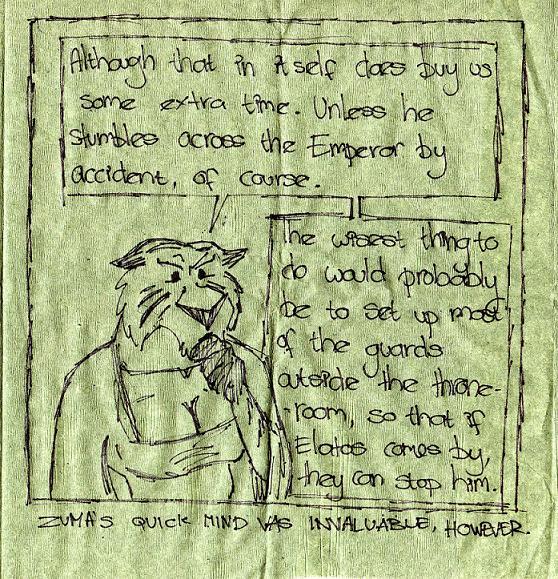 Although that in itself does buy us
some extra time. Unless he
stumbles across the Emperor by
accident, of course.
The wisest thing to
do would probably
be to set up most
of the guards
outside the throne-
-room, so that if
Elatos comes by,
they can stop him.
ZUMA'S QUICK MIND WAS INVALUABLE, HOWEVER.